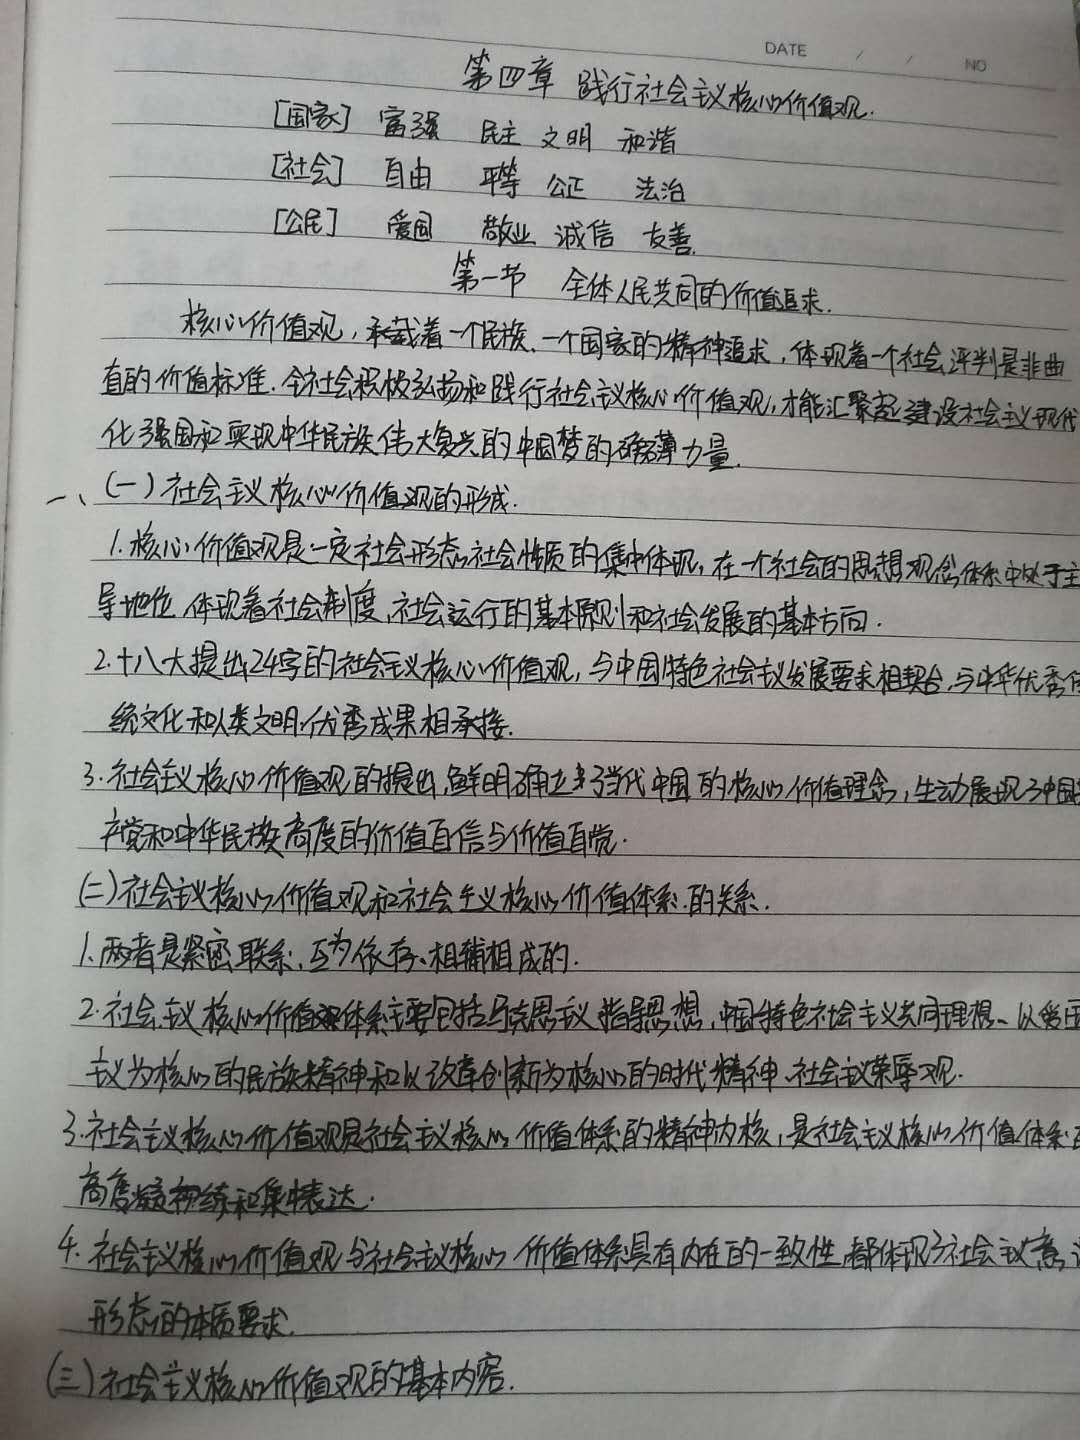 DATE / / NO
第四章 践行社会主义核心价值观.
[国家] 富强 民主 文明 和谐
[社会] 自由 平等 公正 法治
[公民] 爱国 敬业 诚信 友善.
第一节 全体人民共同的价值追求.
核心价值观，承载着一个民族、一个国家的精神追求，体现着一个社会评判是非曲
直的价值标准.全社会积极弘扬和践行社会主义核心价值观，才能汇聚起建设社会主义现代
化强国和实现中华民族伟大复兴的中国梦的磅礴力量.
一、(一)社会主义核心价值观的形成.
1.核心价值观是一定社会形态社会性质的集中体现，在一个社会的思想观念体系中处于主
导地位，体现着社会制度、社会运行的基本原则和社会发展的基本方向.
2.十八大提出24字的社会主义核心价值观，与中国特色社会主义发展要求相契合，与中华优秀传
统文化和人类文明优秀成果相承接.
3.社会主义核心价值观的提出，鲜明确立了当代中国的核心价值理念，生动展现了中国共
产党和中华民族高度的价值自信与价值自觉.
(二)社会主义核心价值观和社会主义核心价值体系的关系.
1.两者是紧密联系、互为依存、相辅相成的.
2.社会主义核心价值体系主要包括马克思主义指导思想，中国特色社会主义共同理想、以爱国
主义为核心的民族精神和以改革创新为核心的时代精神、社会主义荣辱观.
3.社会主义核心价值观是社会主义核心价值体系的精神内核，是社会主义核心价值体系的
高度凝练和集中表达.
4.社会主义核心价值观与社会主义核心价值体系具有内在的一致性，都体现了社会主义意识
形态的本质要求.
(三)社会主义核心价值观的基本内容.